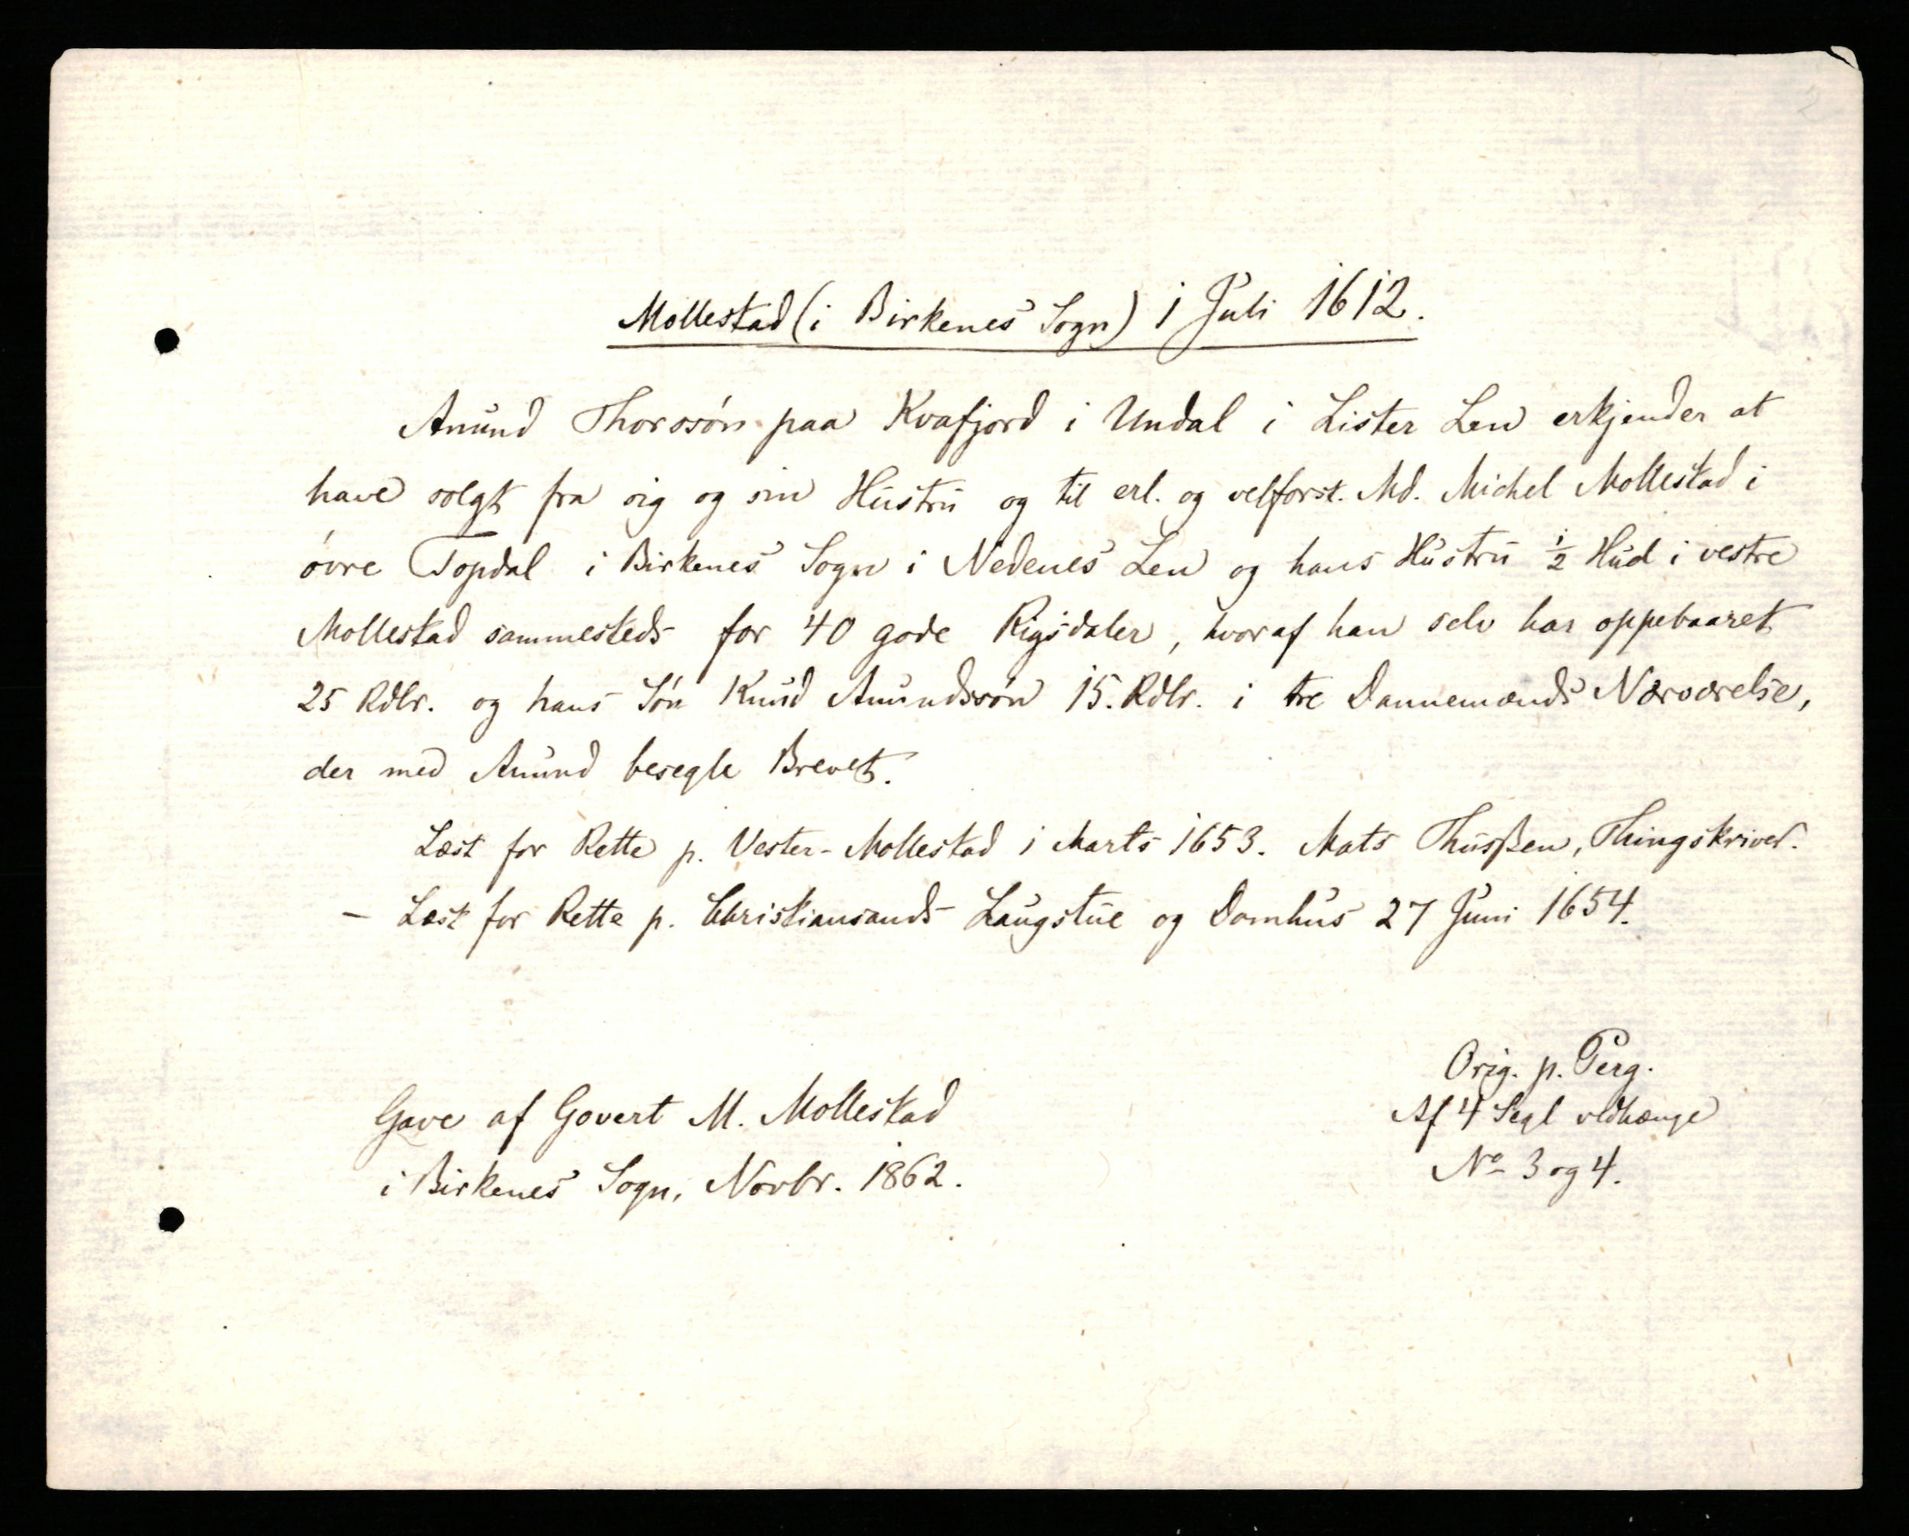 Mollestad (i Birkenes Sogn) 1 Juli 1612.
Anund Thorosön paa Kvafjord i Undal i Lister Len erkjender at
have solgt fra sig og sin Hustru og til erl. og velforst. Md. Michel Mollestad i
övre Topdal i Birkenes Sogn i Nedenes Len og hans Hustru ½ Hud i vestre
Mollestad sammesteds for 40 gode Rigsdaler, hvoraf han selv har oppebaaret
25 Rdlr. og hans Sön Knud Anundssön 15. Rdlr. i tre Dannemænds Nærværelse,
der med Anund besegle Brevet.
Læst for Rette p. Vester-Mollestad 1 Marts 1653. Mats Thusßen, Thingskriver.
— Læst for Rette p. Christiansands Laugstue og Domhus 27 Juni 1654.
Orig. p. Perg.
Af 4 Segl vedhænge
No 3 og 4.
Gave af Govert M. Mollestad
i Birkenes Sogn, Novbr. 1862.